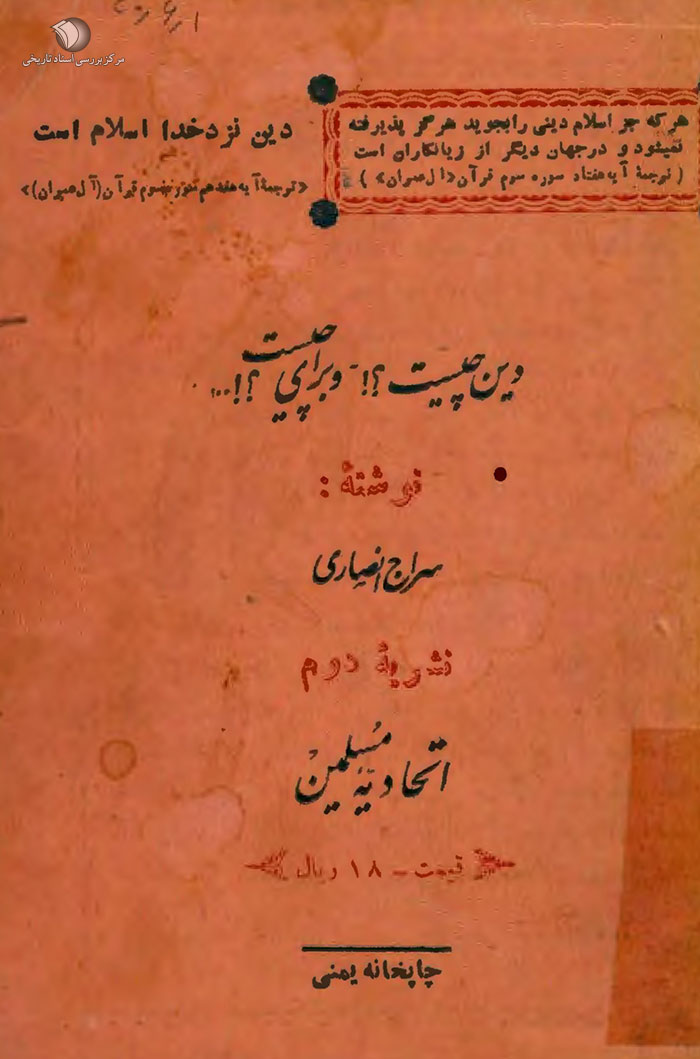 مرکز بررسی اسناد تاریخی
هر که جز اسلام دینی را بجوید هرگز پذیرفته
نمیشود و در جهان دیگر از زیانکاران است
(ترجمهٔ آیه هفتاد سوره سوم قرآن «آل عمران»)
دین نزد خدا اسلام است
«ترجمهٔ آیه هفدهم سوره سوم قرآن (آل عمران)»
دین چیست؟! - و برای چیست؟!...
نوشتهٔ:
سراج انصاری
نشریهٔ دوم
اتحادیهٔ مسلمین
قیمت - ۱۸ ریال
چاپخانه یمنی